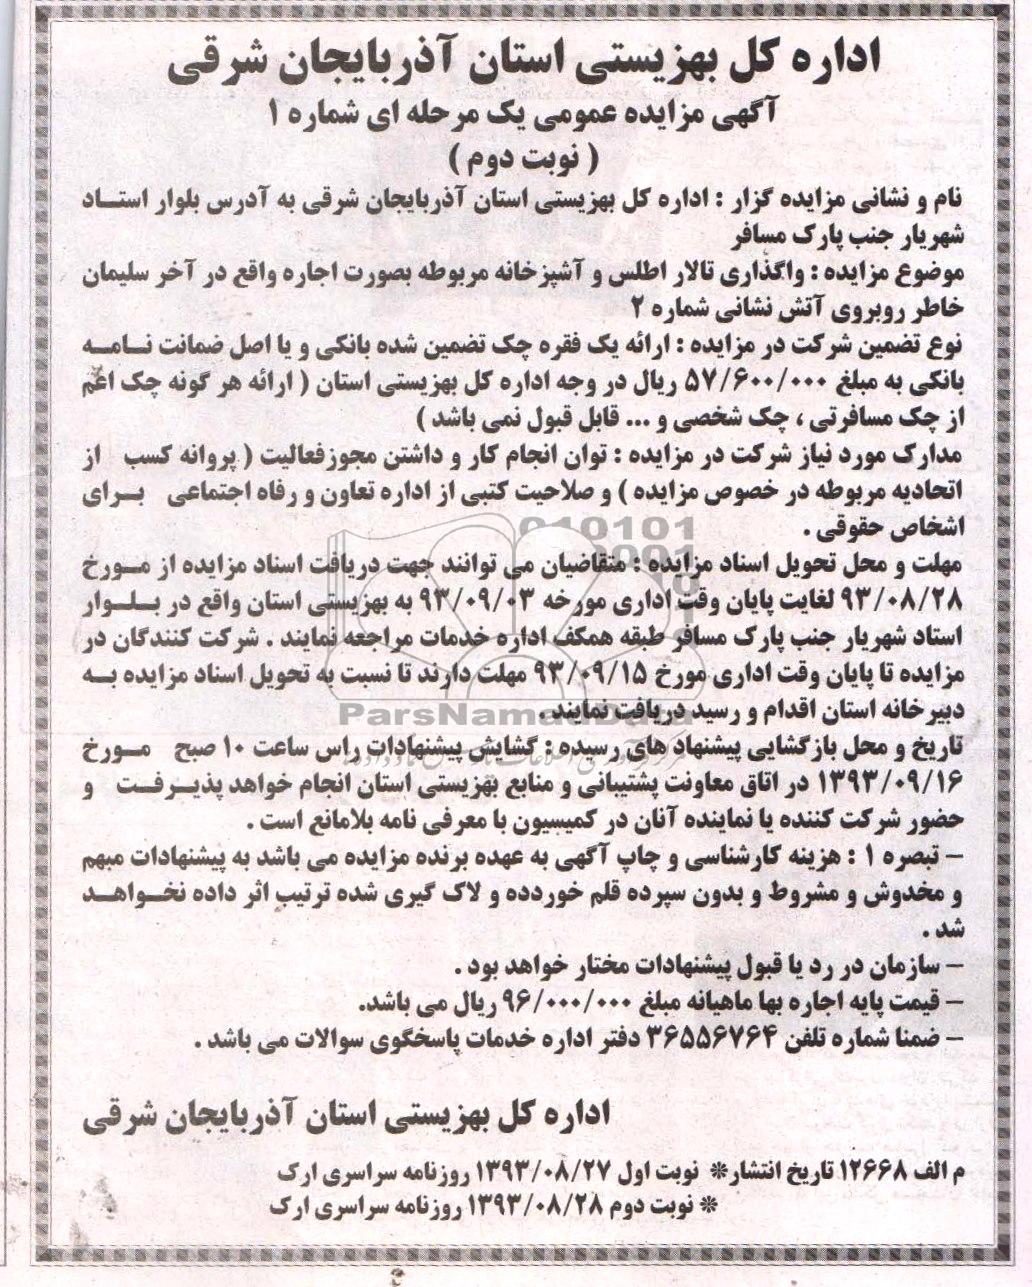 اداره کل بهزیستی استان آذربایجان شرقی
آگهی مزایده عمومی یک مرحله ای شماره ۱
( نوبت دوم )
نام و نشانی مزایده گزار : اداره کل بهزیستی استان آذربایجان شرقی به آدرس بلوار استاد
شهریار جنب پارک مسافر
موضوع مزایده : واگذاری تالار اطلس و آشپزخانه مربوطه بصورت اجاره واقع در آخر سلیمان
خاطر روبروی آتش نشانی شماره ۲
نوع تضمین شرکت در مزایده : ارائه یک فقره چک تضمین شده بانکی و یا اصل ضمانت نامه
بانکی به مبلغ ۵۷/۶۰۰/۰۰۰ ریال در وجه اداره کل بهزیستی استان ( ارائه هر گونه چک اعم
از چک مسافرتی ، چک شخصی و ... قابل قبول نمی باشد )
مدارک مورد نیاز شرکت در مزایده : توان انجام کار و داشتن مجوزفعالیت ( پروانه کسب از
اتحادیه مربوطه در خصوص مزایده ) و صلاحیت کتبی از اداره تعاون و رفاه اجتماعی برای
اشخاص حقوقی .
مهلت و محل تحویل اسناد مزایده : متقاضیان می توانند جهت دریافت اسناد مزایده از مورخ
۹۳/۰۸/۲۸ لغایت پایان وقت اداری مورخه ۹۳/۰۹/۰۳ به بهزیستی استان واقع در بلوار
استاد شهریار جنب پارک مسافر طبقه همکف اداره خدمات مراجعه نمایند . شرکت کنندگان در
مزایده تا پایان وقت اداری مورخ ۹۳/۰۹/۱۵ مهلت دارند تا نسبت به تحویل اسناد مزایده به
دبیرخانه استان اقدام و رسید دریافت نمایند .
تاریخ و محل بازگشایی پیشنهاد های رسیده : گشایش پیشنهادات راس ساعت ۱۰ صبح مورخ
۱۳۹۳/۰۹/۱۶ در اتاق معاونت پشتیبانی و منابع بهزیستی استان انجام خواهد پذیرفت و
حضور شرکت کننده یا نماینده آنان در کمیسیون با معرفی نامه بلامانع است .
– تبصره ۱ : هزینه کارشناسی و چاپ آگهی به عهده برنده مزایده می باشد به پیشنهادات مبهم
و مخدوش و مشروط و بدون سپرده قلم خوردده و لاک گیری شده ترتیب اثر داده نخواهد
شد .
– سازمان در رد یا قبول پیشنهادات مختار خواهد بود .
– قیمت پایه اجاره بها ماهیانه مبلغ ۹۶/۰۰۰/۰۰۰ ریال می باشد.
– ضمنا شماره تلفن ۳۶۵۵۶۷۶۴ دفتر اداره خدمات پاسخگوی سوالات می باشد .
اداره کل بهزیستی استان آذربایجان شرقی
م الف ۱۲۶۶۸ تاریخ انتشار* نوبت اول ۱۳۹۳/۰۸/۲۷ روزنامه سراسری ارک
* نوبت دوم ۱۳۹۳/۰۸/۲۸ روزنامه سراسری ارک
ParsNamadData